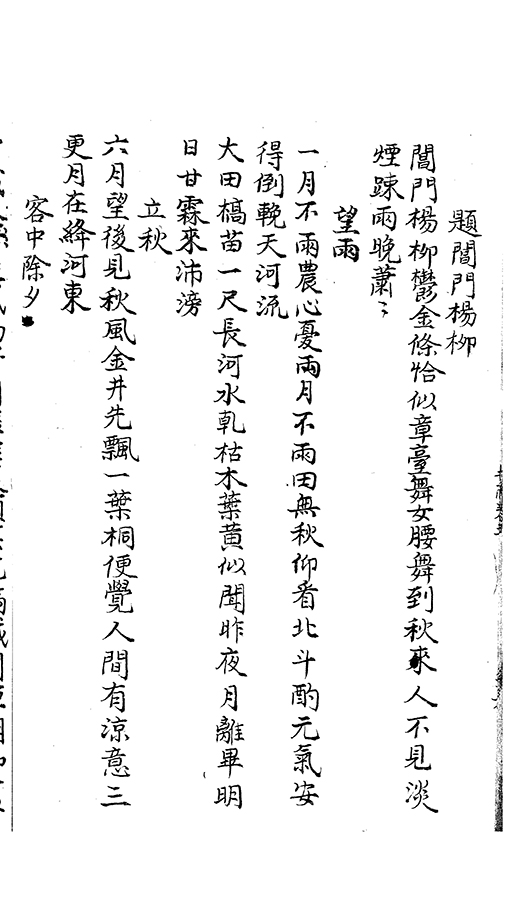 題閶門楊柳
閶門楊柳鬱金條恰似章臺舞女腰舞到秋來人不見淡
煙踈雨晚蕭〻
望雨
一月不雨農心憂兩月不雨田無秋仰看北斗酌元氣安
得倒輓天河流
大田槁苗一尺長河水乹枯木葉黃似聞昨夜月離畢明
日甘霖來沛滂
立秋
六月望後見秋風金井先飄一葉桐便覺人間有涼意三
更月在絳河東
客中除夕